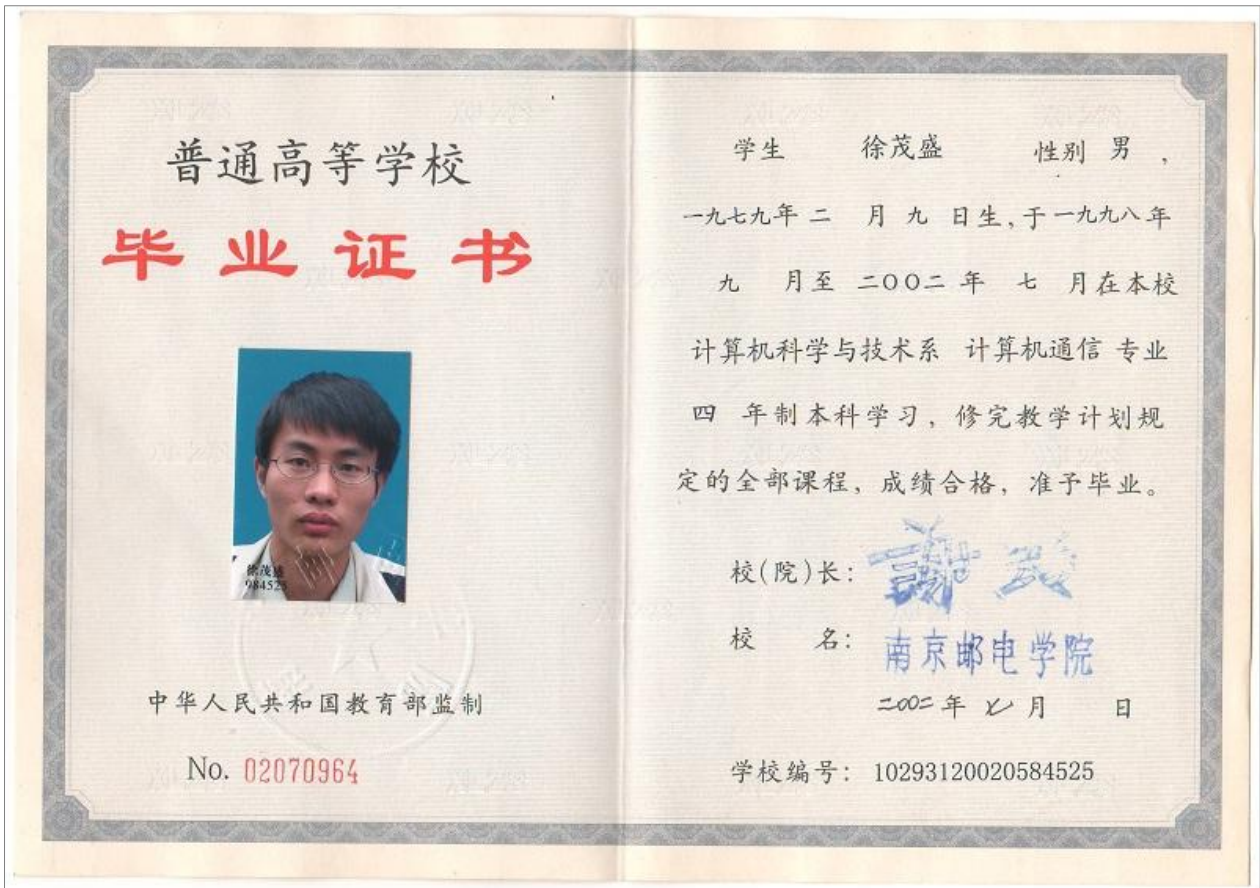 普通高等学校
毕业证书
徐茂盛
984525
中华人民共和国教育部监制
No. 02070964
学生 徐茂盛 性别 男 ，
一九七九年 二 月 九 日生，于一九九八年
九 月至 二〇〇二 年 七 月在本校
计算机科学与技术系 计算机通信 专业
四 年制本科学习，修完教学计划规
定的全部课程，成绩合格，准予毕业。
校（院）长：
校 名： 南京邮电学院
二〇〇二 年 七 月 日
学校编号： 10293120020584525